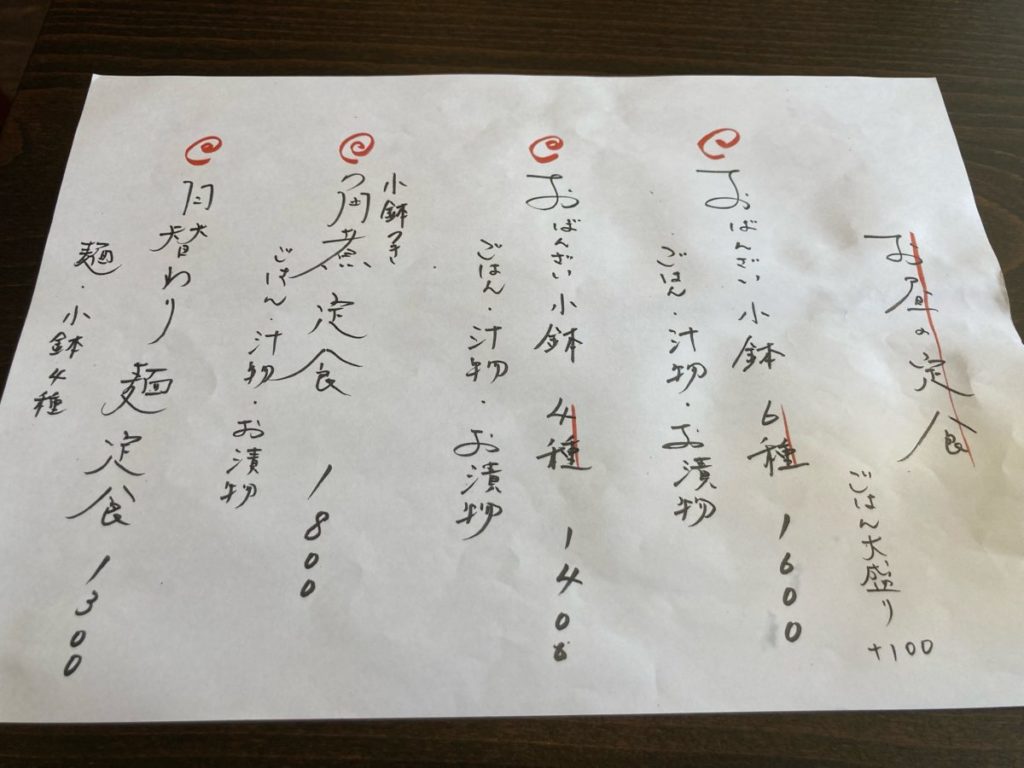 お昼の定食
ごはん大盛り +100
おばんざい小鉢6種 1600
ごはん・汁物・お漬物
おばんざい小鉢4種 1400
ごはん・汁物・お漬物
小鉢つき
角煮定食 1800
ごはん・汁物・お漬物
月替わり麺定食 1300
麺・小鉢4種